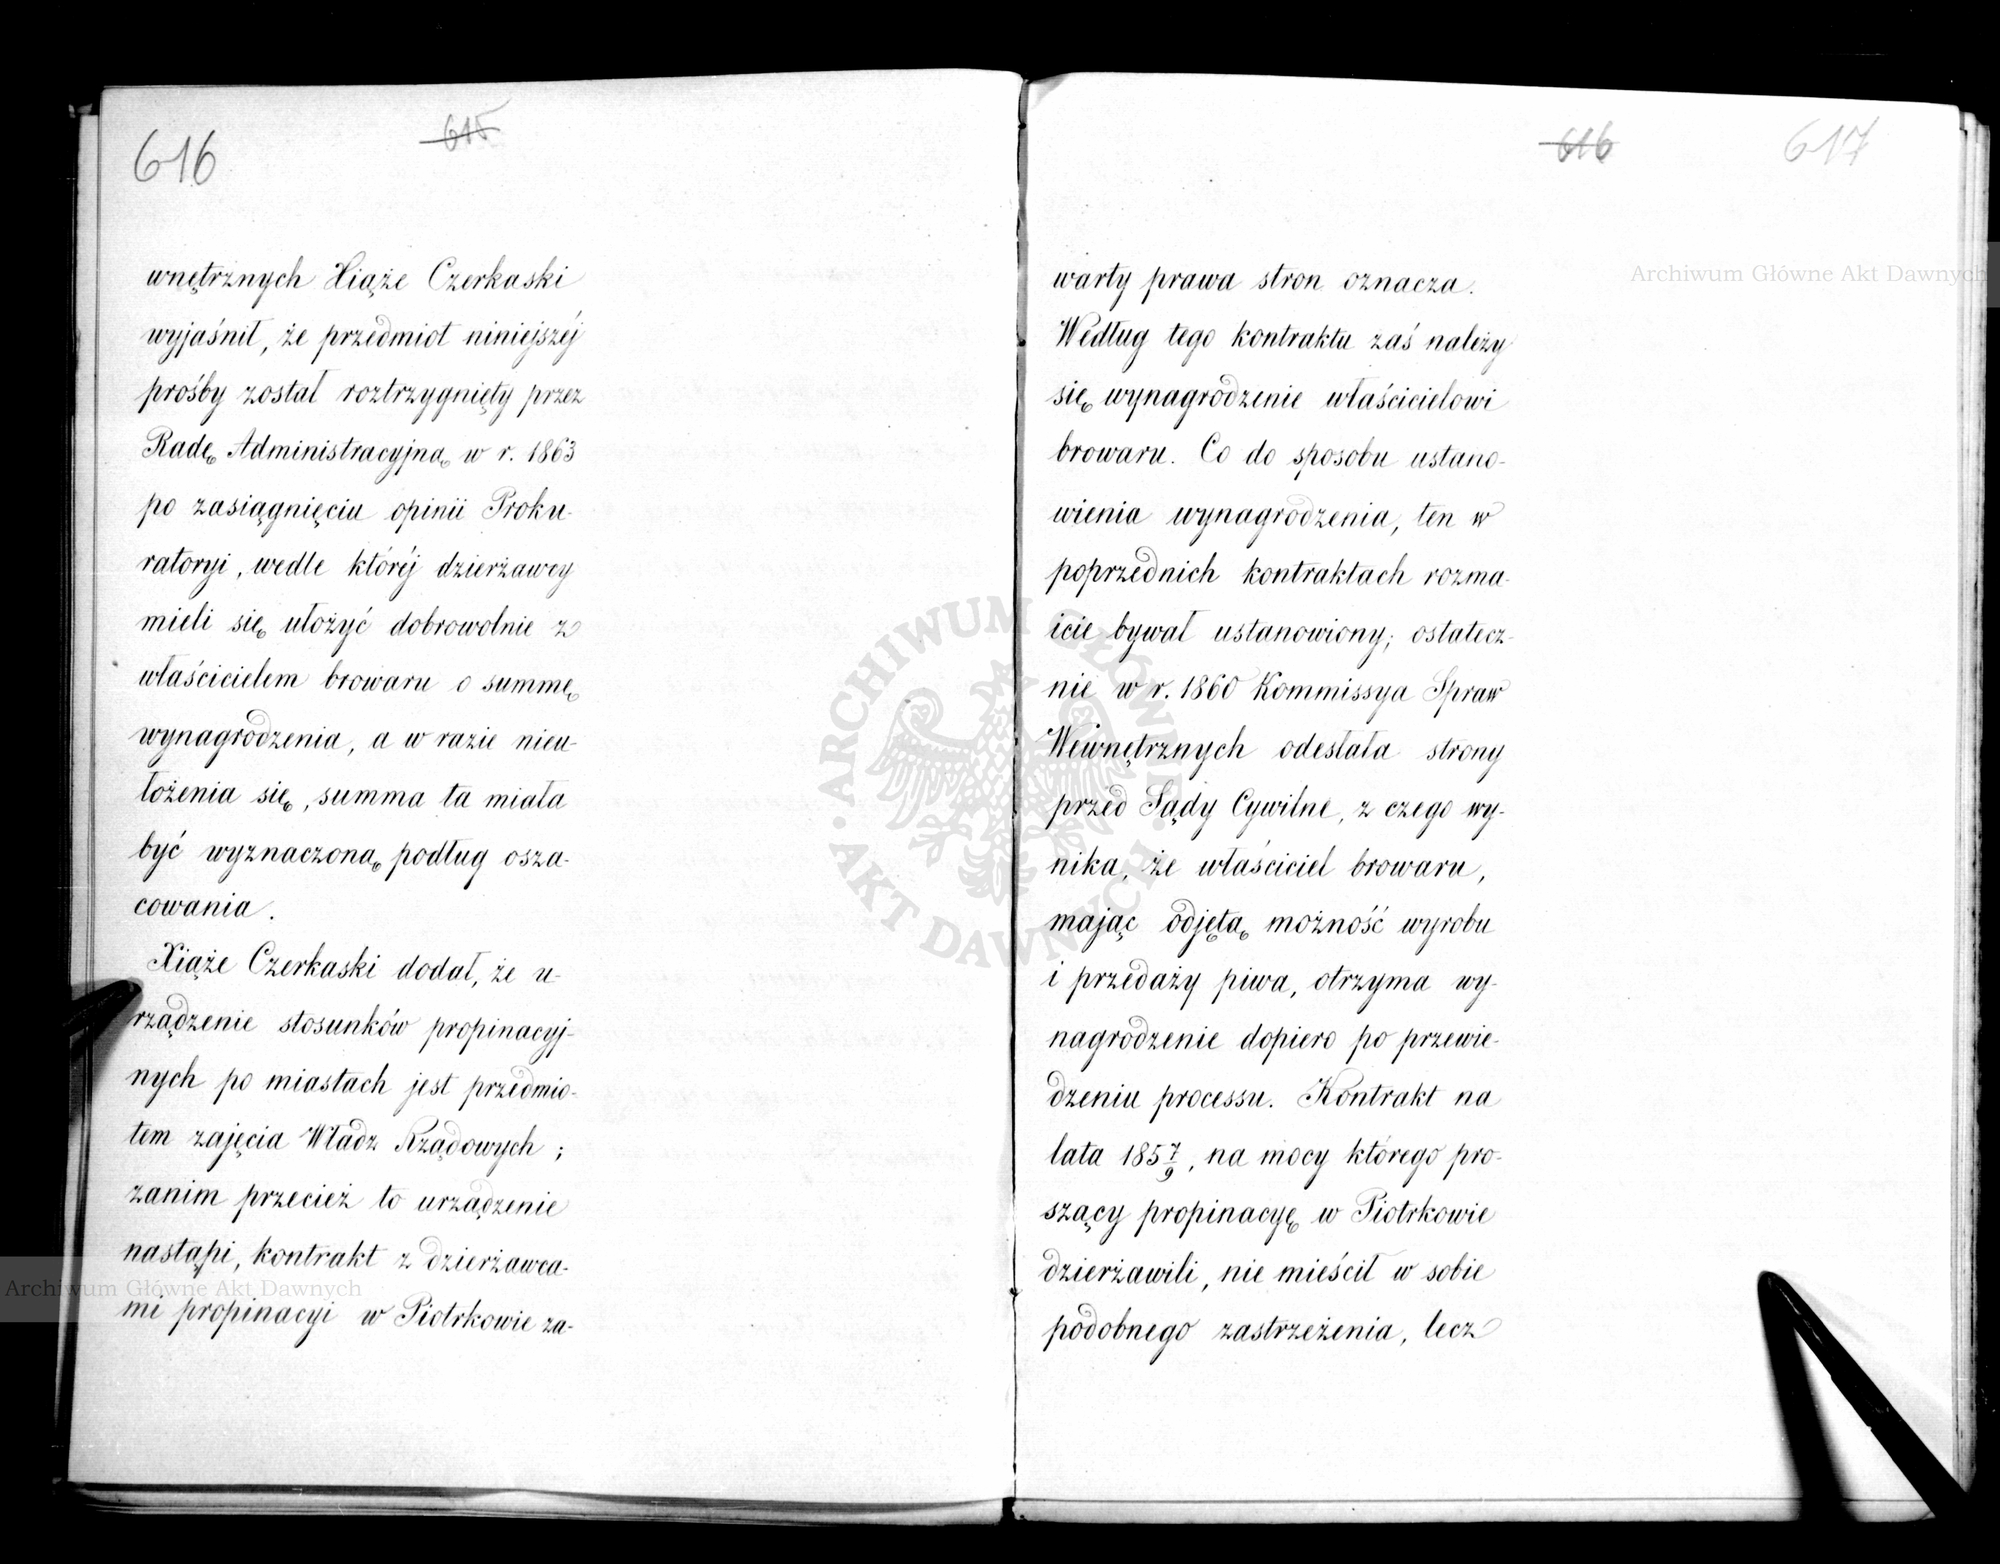 616
615
wnętrznych Xiąże Czerkaski
wyjaśnił, że przedmiot niniejszéj
prośby został roztrzygnięty przez
Radę Administracyjną w r. 1863
po zasiągnięciu opinii Proku-
ratoryi, wedle któréj dzierżawcy
mieli się ułożyć dobrowolnie z
właścicielem browaru o summę
wynagrodzenia, a w razie nieu-
łożenia się, summa ta miała
być wyznaczoną podług osza-
cowania.
Xiąże Czerkaski dodał, że u-
rządzenie stosunków propinacyj-
nych po miastach jest przedmio-
tem zajęcia Władz Rządowych;
zanim przecież to urządzenie
nastąpi, kontrakt z dzierżawca-
mi propinacyi w Piotrkowie za-
616
617
warty prawa stron oznacza.
Według tego kontraktu zaś należy
się wynagrodzenie właścicielowi
browaru. Co do sposobu ustano-
wienia wynagrodzenia, ten w
poprzednich kontraktach rozma-
icie bywał ustanowiony; ostatecz-
nie w r. 1860 Kommissya Spraw
Wewnętrznych odesłała strony
przed Sądy Cywilne, z czego wy-
nika, że właściciel browaru,
mając odjętą możność wyrobu
i przedaży piwa, otrzyma wy-
nagrodzenie dopiero po przewie-
dzeniu processu. Kontrakt na
lata 1857/9, na mocy którego pro-
szący propinacyę w Piotrkowie
dzierżawili, nie mieścił w sobie
podobnego zastrzeżenia, lecz
Archiwum Główne Akt Dawnych
Archiwum Główne Akt Dawnych
ARCHIWUM GŁÓWNE
AKT DAWNYCH